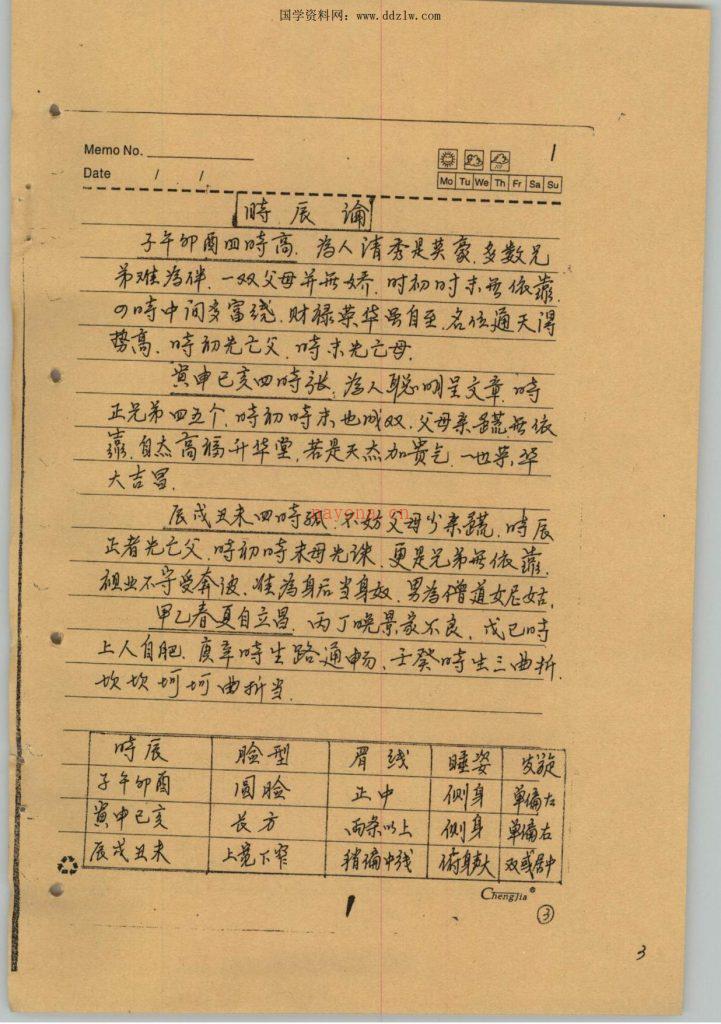 国学资料网：www.ddzlw.com
1
Memo No.
Date / /
Mo Tu We Th Fr Sa Su
時辰論
子午卯酉四時高．為人清秀是英豪．多数兄
弟难為伴．一双父母并無娇．时初时末無依靠．
の時中间多富绕．财禄荣华虽自至．名位通天得
势高．時初先亡父．時末先亡母．
寅申已亥四時張．為人聪明呈文章．時
正兄弟四五个．時初時末也成双．父母亲疏無依
靠．自杰高福升华堂．若是天杰加贵气．一世荣华
大吉昌．
辰戌丑未四時孤．不妨父母少亲疏．時辰
正者先亡父．時初時末母先诛．更是兄弟無依靠．
祖业不守受奔波．难為身后当身奴．男為僧道女尼姑．
甲乙春夏自立昌．丙丁晚景家不良．戊已時
上人自肥．庚辛時生路通畅．壬癸時生三曲折．
坎坎坷坷曲折当．
時辰 脸型 眉线 睡姿 发旋
子午卯酉 圆脸 正中 侧身 单偏左
寅申已亥 长方 两条以上 侧身 单偏右
辰戌丑未 上宽下窄 稍偏中线 俯身 双或居中
ChengJia®
1
③
3